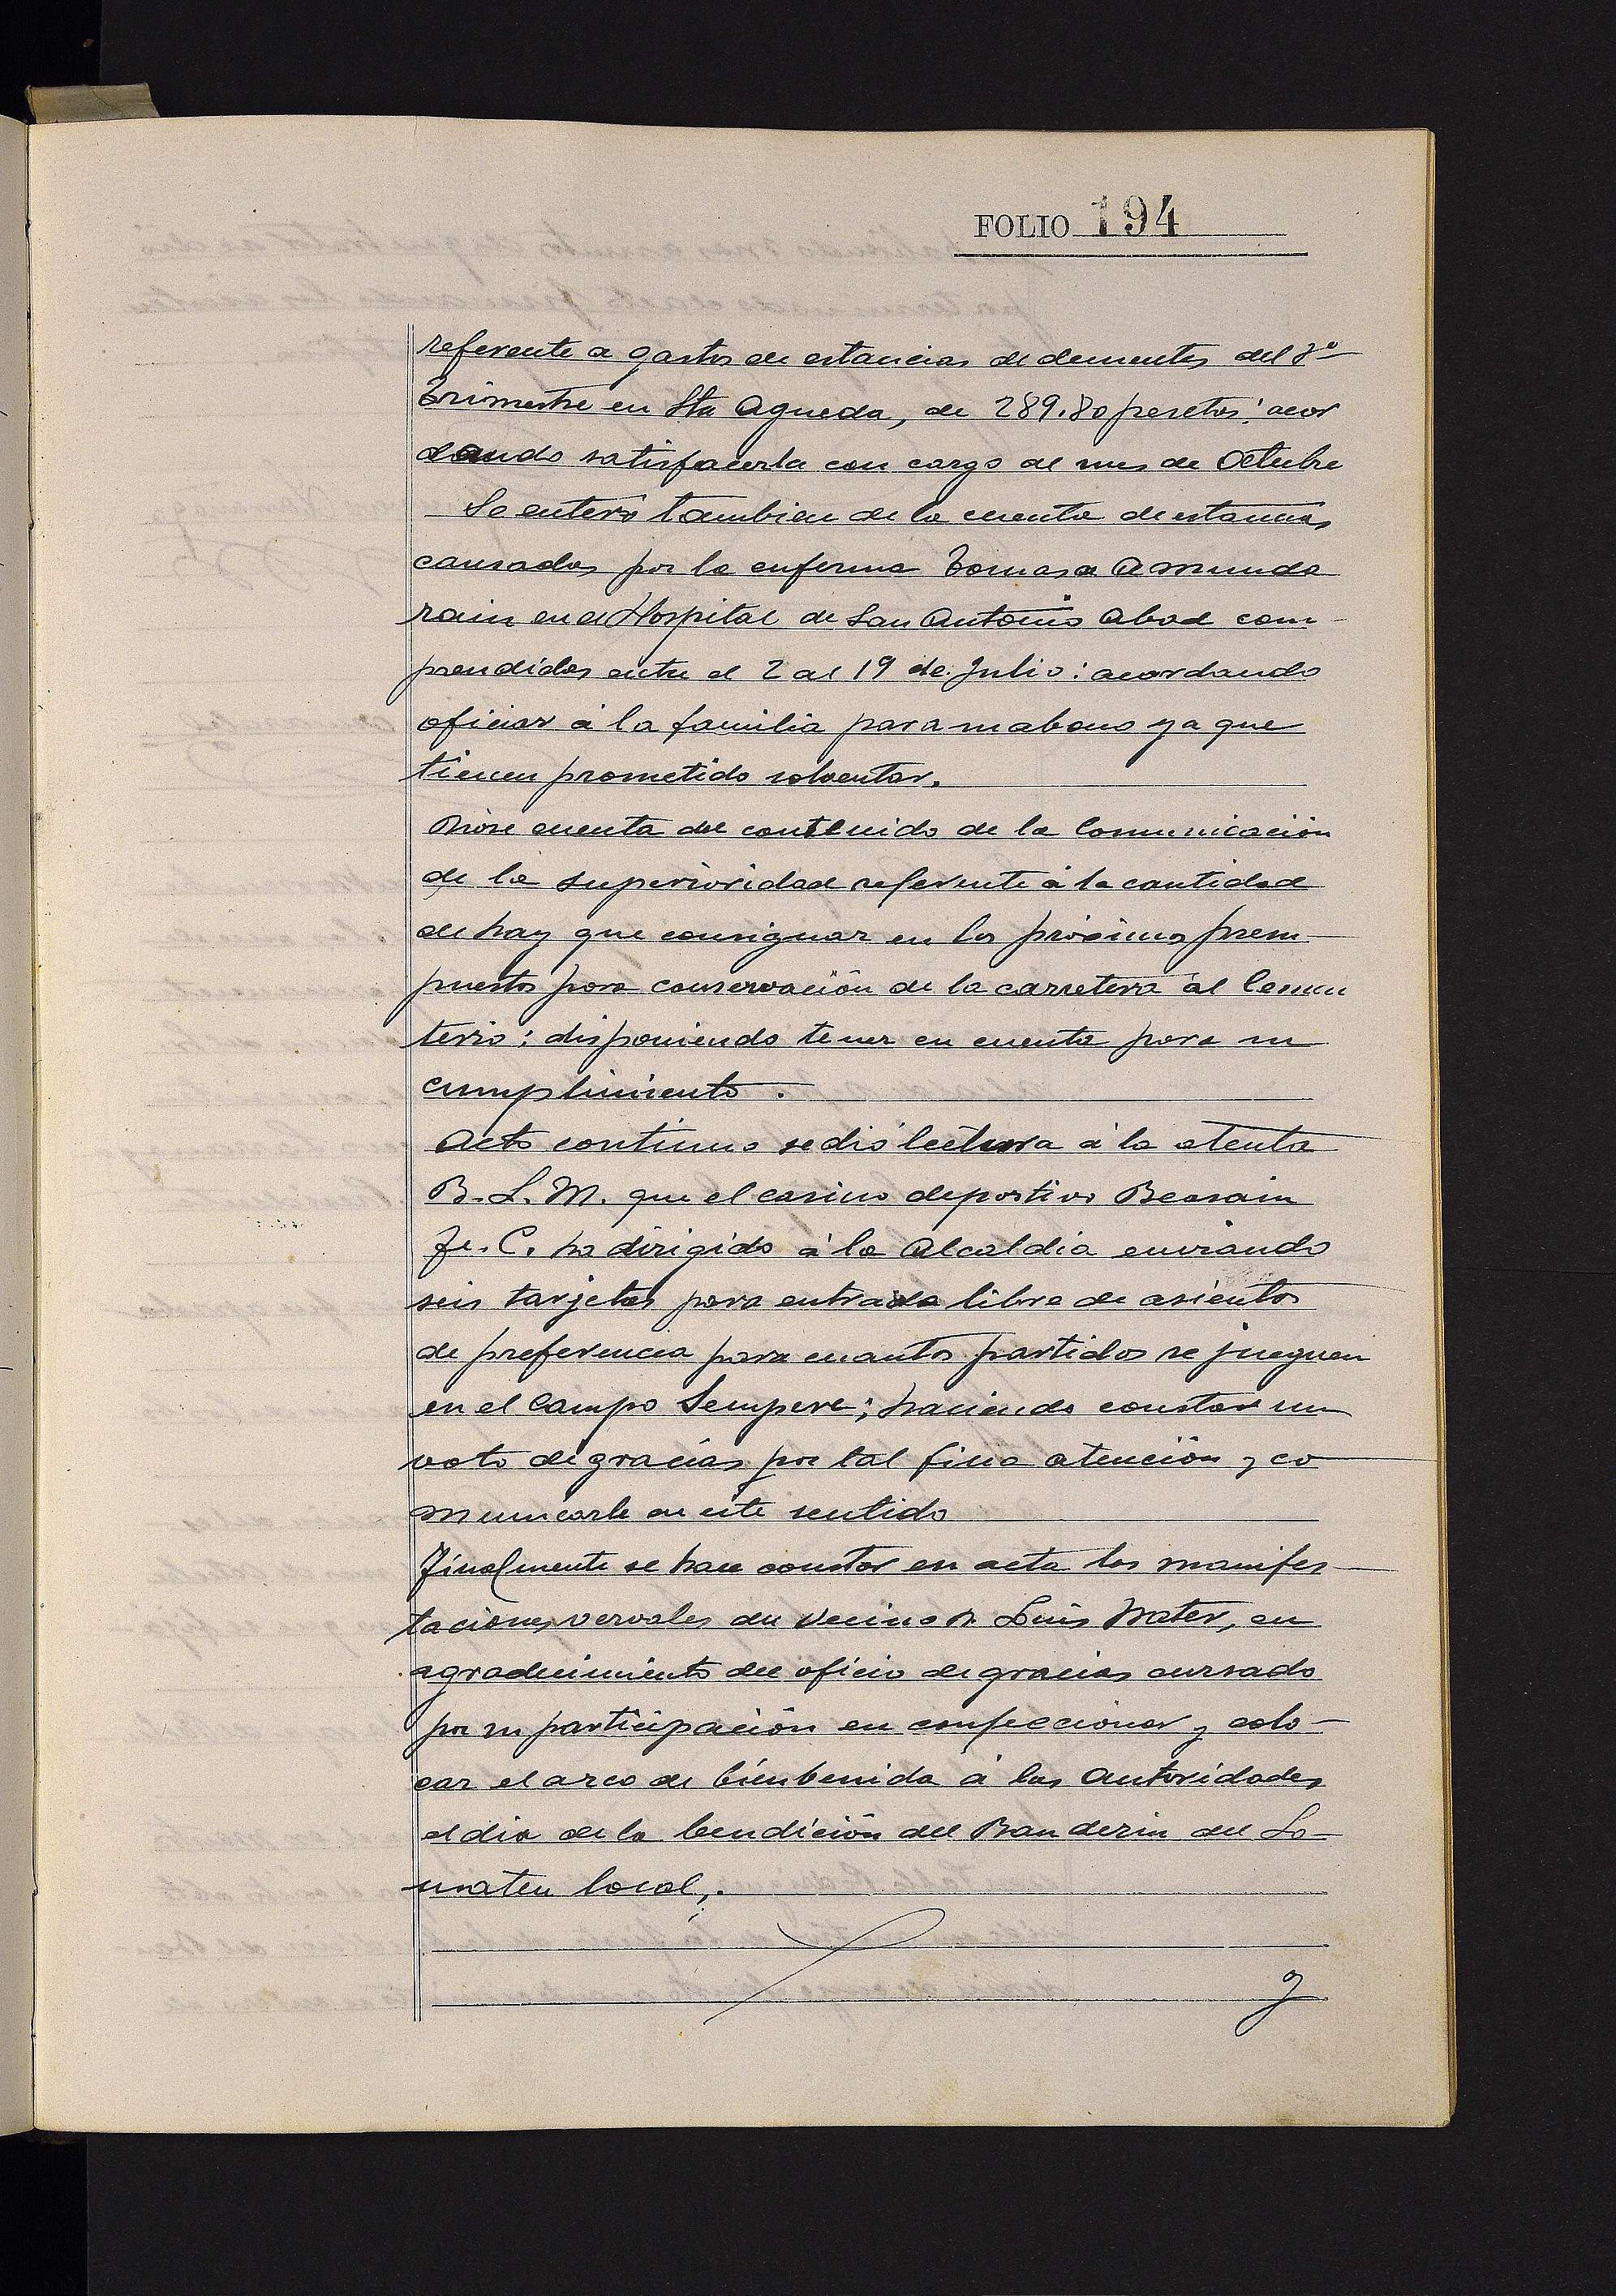 FOLIO 194
referente a gastos de estancias de dementes del 3º
Trimestre en Sta Agueda, de 289.80 pesetas: acor
dando satisfacerla con cargo al mes de Octubre
Se enteró tambien de la cuenta de estancias
causadas por la enferma Tomasa Amunda
rain en el Hospital de San Antonio Abad com-
prendidas entre el 2 al 19 de Julio: acordando
oficiar á la familia para su abono ya que
tienen prometido solventar.
Dióse cuenta del contenido de la Comunicación
de la superioridad referente á la cantidad
de hay que consignar en los próximos presu-
puestos para conservación de la carretera al Cemen
terio: disponiendo tener en cuenta para su
cumplimiento.
Acto continuo se dió lectura á la atenta
B. L. M. que el casino deportivo Beasain
F. C. ha dirigido á la Alcaldia enviando
seis tarjetas para entrada libre de asientos
de preferencia para cuantos partidos se jueguen
en el Campo Sempere; haciendo constar un
voto de gracias por tal fina atención y co
municarle en este sentido
Finalmente se hace constar en acta las manifes-
taciones vervales del vecino D. Luis Mater, en
agradecimiento del oficio de gracias cursado
por su participación en confeccionar y colo-
car el arco de bienbenida á las Autoridades
el dia de la bendición del Banderin del So-
maten local,.
y